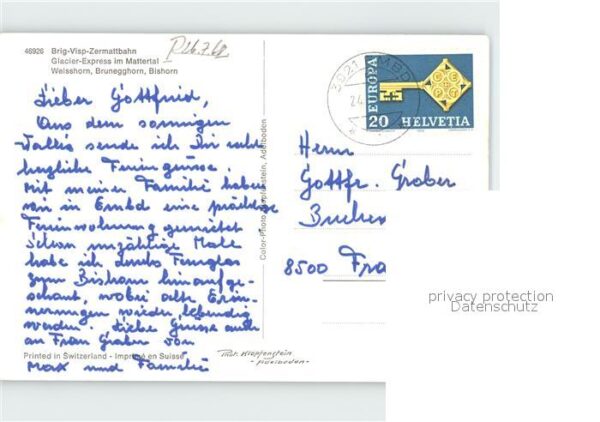 46926 Brig-Visp-Zermattbahn
Glacier-Express im Mattertal
Weisshorn, Brunegghorn, Bishorn
P 26.7.68
Lieber Gottfried,
Aus dem sonnigen
Wallis sende ich Dir recht
herzliche Feriengrüsse.
Mit meiner Familie haben
wir in Embd eine prächtige
Ferienwohnung gemietet
Schon unzählige Male
habe ich durchs Fernglas
zum Bishorn hinaufge-
schaut, wobei alte Erin-
nerungen wieder lebendig
werden. Liebe Grüsse auch
an Frau Graber von
Max und Familie
Printed in Switzerland - Imprimé en Suisse
Color-Photo Klopfenstein, Adelboden
Phot. Klopfenstein
- Adelboden -
3921 EMBD
24.
EUROPA
CEPT
20 HELVETIA
Herrn
Gottfr. Graber
Buchen
8500 Frau
privacy protection
Datenschutz